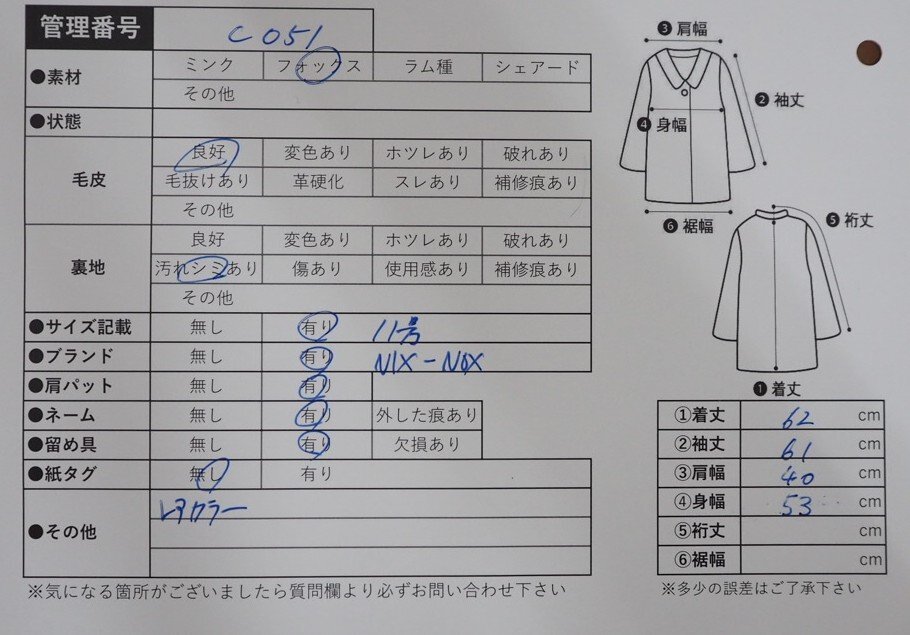 管理番号 C 051
●素材 ミンク フォックス ラム種 シェアード
その他
●状態
毛皮 良好 変色あり ホツレあり 破れあり
毛抜けあり 革硬化 スレあり 補修痕あり
その他
裏地 良好 変色あり ホツレあり 破れあり
汚れシミあり 傷あり 使用感あり 補修痕あり
その他
●サイズ記載 無し 有り 11号
●ブランド 無し 有り NIX-NOX
●肩パット 無し 有り
●ネーム 無し 有り 外した痕あり
●留め具 無し 有り 欠損あり
●紙タグ 無し 有り
●その他 レアカラー
※気になる箇所がございましたら質問欄より必ずお問い合わせ下さい
❸肩幅
❷袖丈
❹身幅
❻裾幅
❺裄丈
❶着丈
①着丈 62 cm
②袖丈 61 cm
③肩幅 40 cm
④身幅 53 cm
⑤裄丈 cm
⑥裾幅 cm
※多少の誤差はご了承下さい